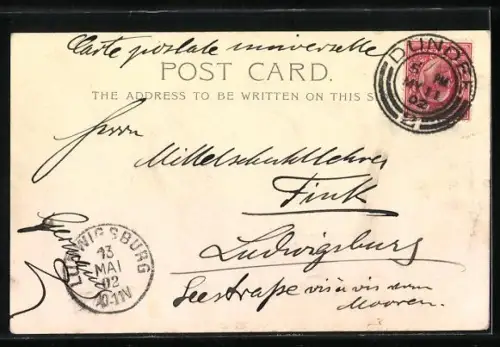 Carte postale universelle
POST CARD.
THE ADDRESS TO BE WRITTEN ON THIS S
DUNDE
5 PM
MY 11
02
2
Herrn
Mittelschullehrer
Fink
Ludwigsburg
Seestraße vis à vis dem
Mooren.
LUDWIGSBURG
13
MAI
02
10-11V